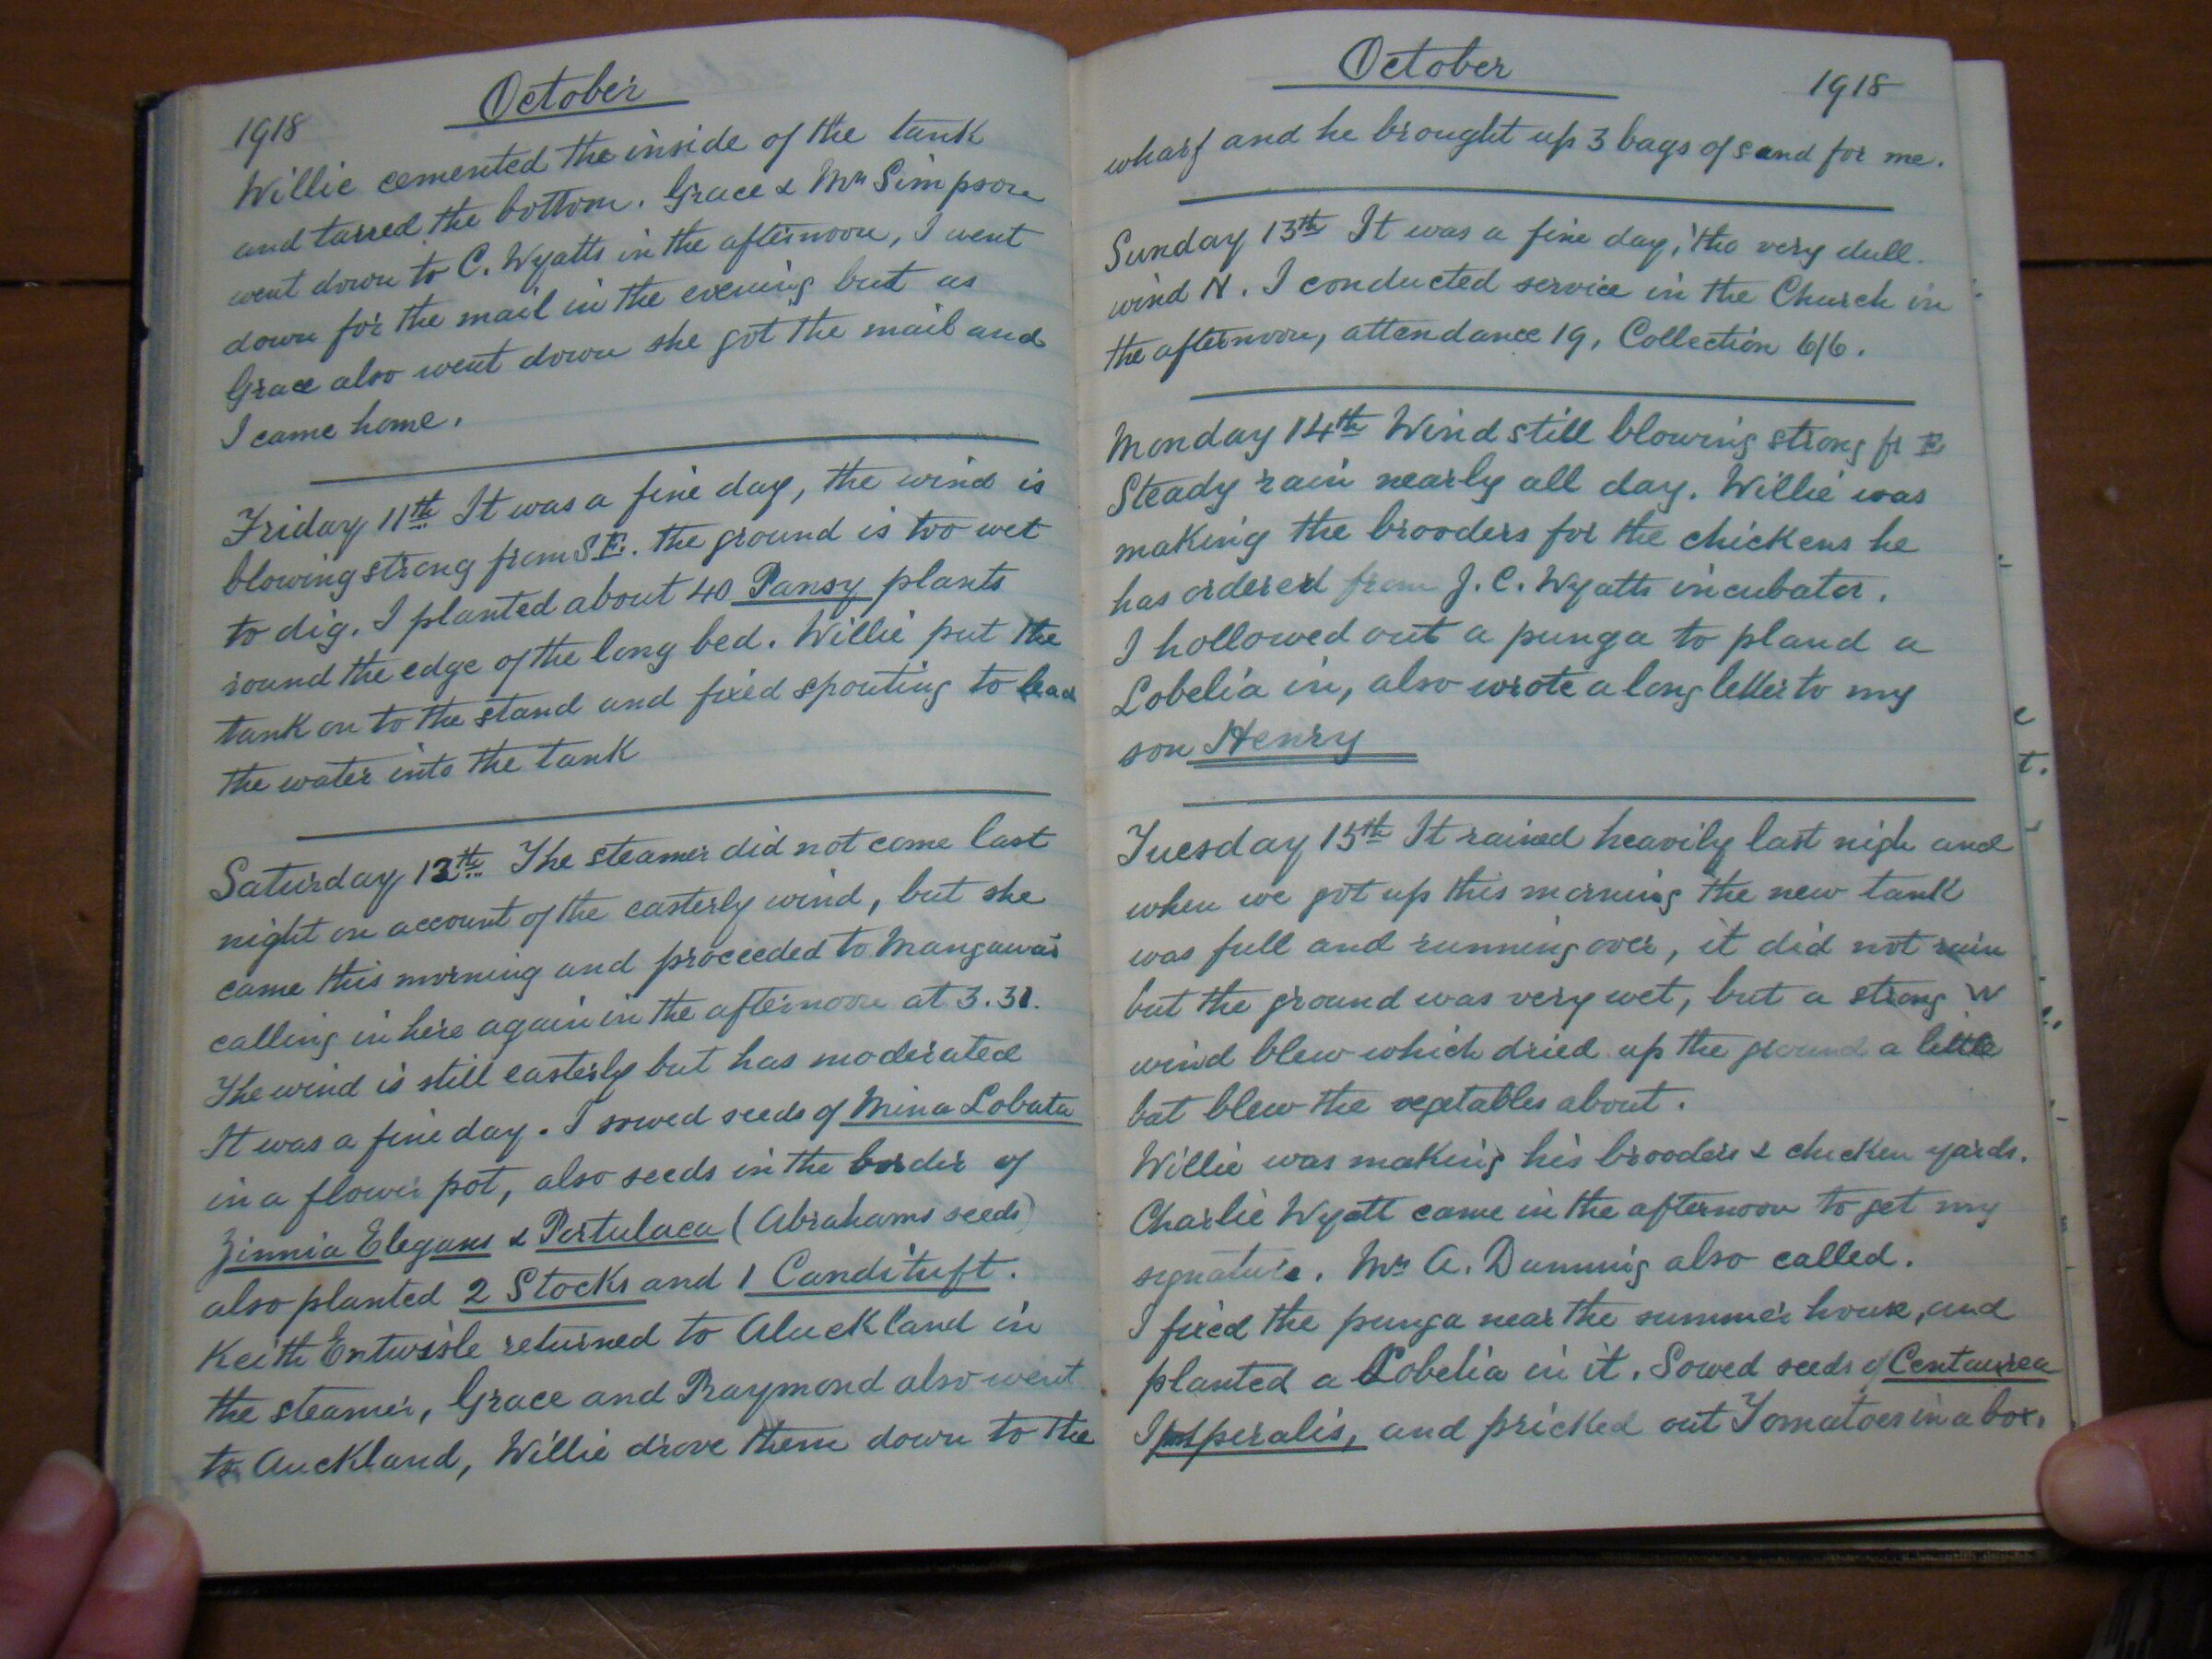 October
1918
Willie cemented the inside of the tank
and tarred the bottom. Grace & Mrs Simpson
went down to C. Wyatts in the afternoon, I went
down for the mail in the evening but as
Grace also went down she got the mail and
I came home.
Friday 11th It was a fine day, the wind is
blowing strong from S E. the ground is too wet
to dig. I planted about 40 Pansy plants
round the edge of the long bed. Willie put the
tank on to the stand and fixed spouting to lead
the water into the tank
Saturday 12th The steamer did not come last
night on account of the easterly wind, but she
came this morning and proceeded to Mangawai
calling in here again in the afternoon at 3.30.
The wind is still easterly but has moderated
It was a fine day. I sowed seeds of Mina Lobata
in a flower pot, also seeds in the border of
Zinnia Elegans & Portulaca (Abrahams seeds)
also planted 2 Stocks and 1 Candituft.
Keith Entwisle returned to Auckland in
the steamer, Grace and Raymond also went
to Auckland, Willie drove them down to the
October
1918
wharf and he brought up 3 bags of sand for me.
Sunday 13th It was a fine day, 'tho very dull.
wind N. I conducted service in the Church in
the afternoon, attendance 19, Collection 6/6.
Monday 14th Wind still blowing strong fr E
Steady rain nearly all day. Willie was
making the brooders for the chickens he
has ordered from J. C. Wyatts incubator.
I hollowed out a punga to pland a
Lobelia in, also wrote a long letter to my
son Henry
Tuesday 15th It rained heavily last nigh and
when we got up this morning the new tank
was full and running over, it did not rain
but the ground was very wet, but a strong W
wind blew which dried up the ground a little
but blew the vegetables about.
Willie was making his brooders & chicken yards.
Charlie Wyatt came in the afternoon to get my
signature. Mr A. Dunning also called.
I fixed the punga near the summer house, and
planted a Lobelia in it. Sowed seeds of Centaurea
Imperalis, and pricked out Tomatoes in a box.